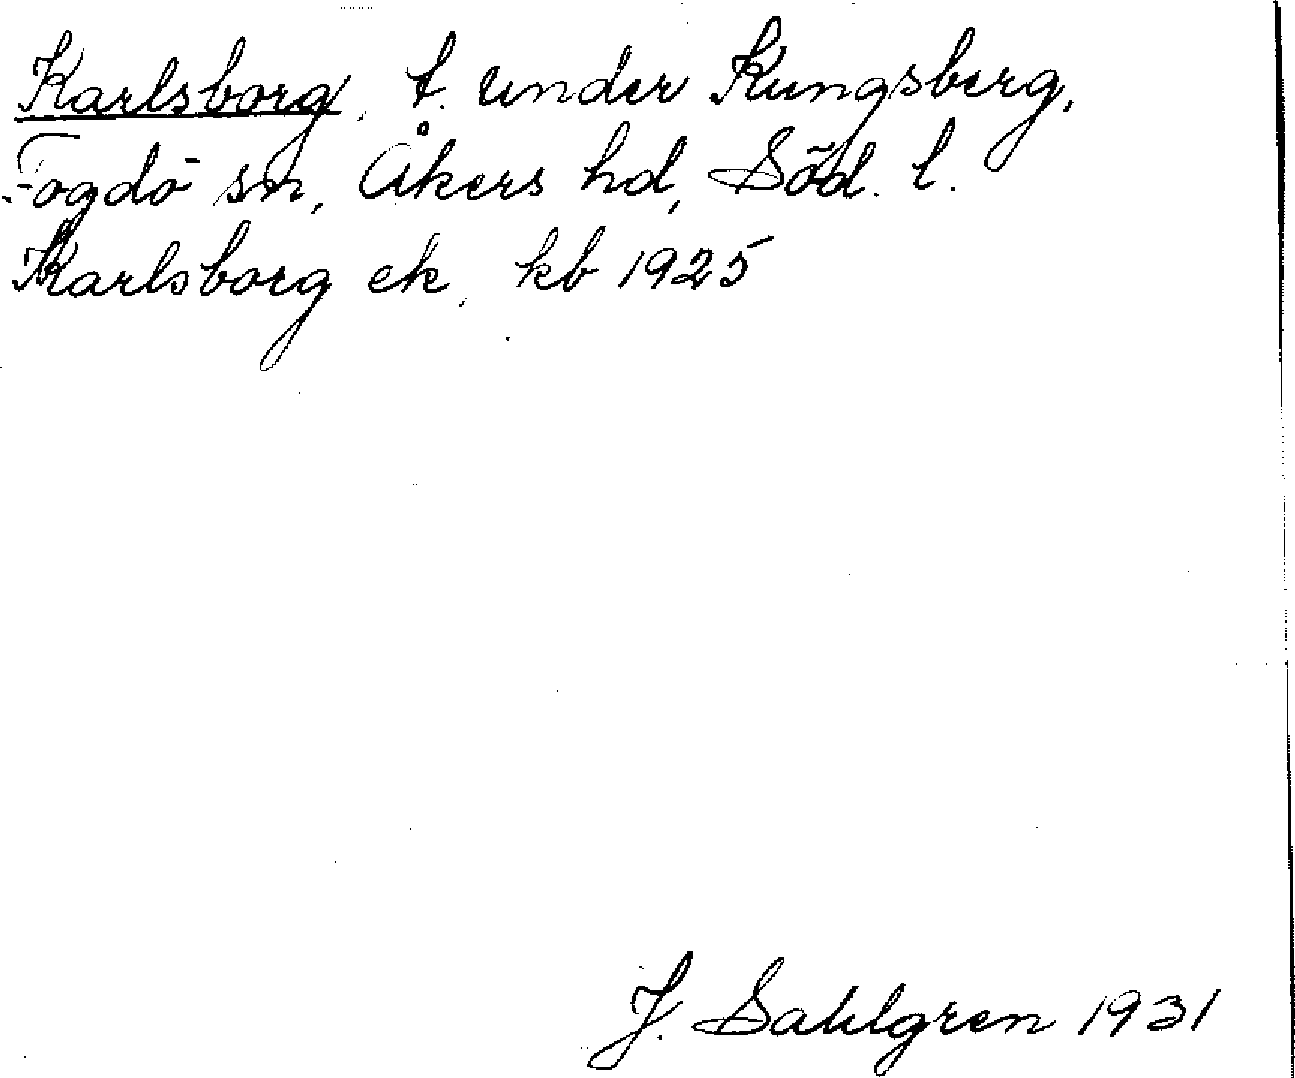 Karlsborg, t. under Kungsberg,
Fogdö sn, Åkers hd, Söd. l.
Karlsborg ek, kb 1925
J. Sahlgren 1931